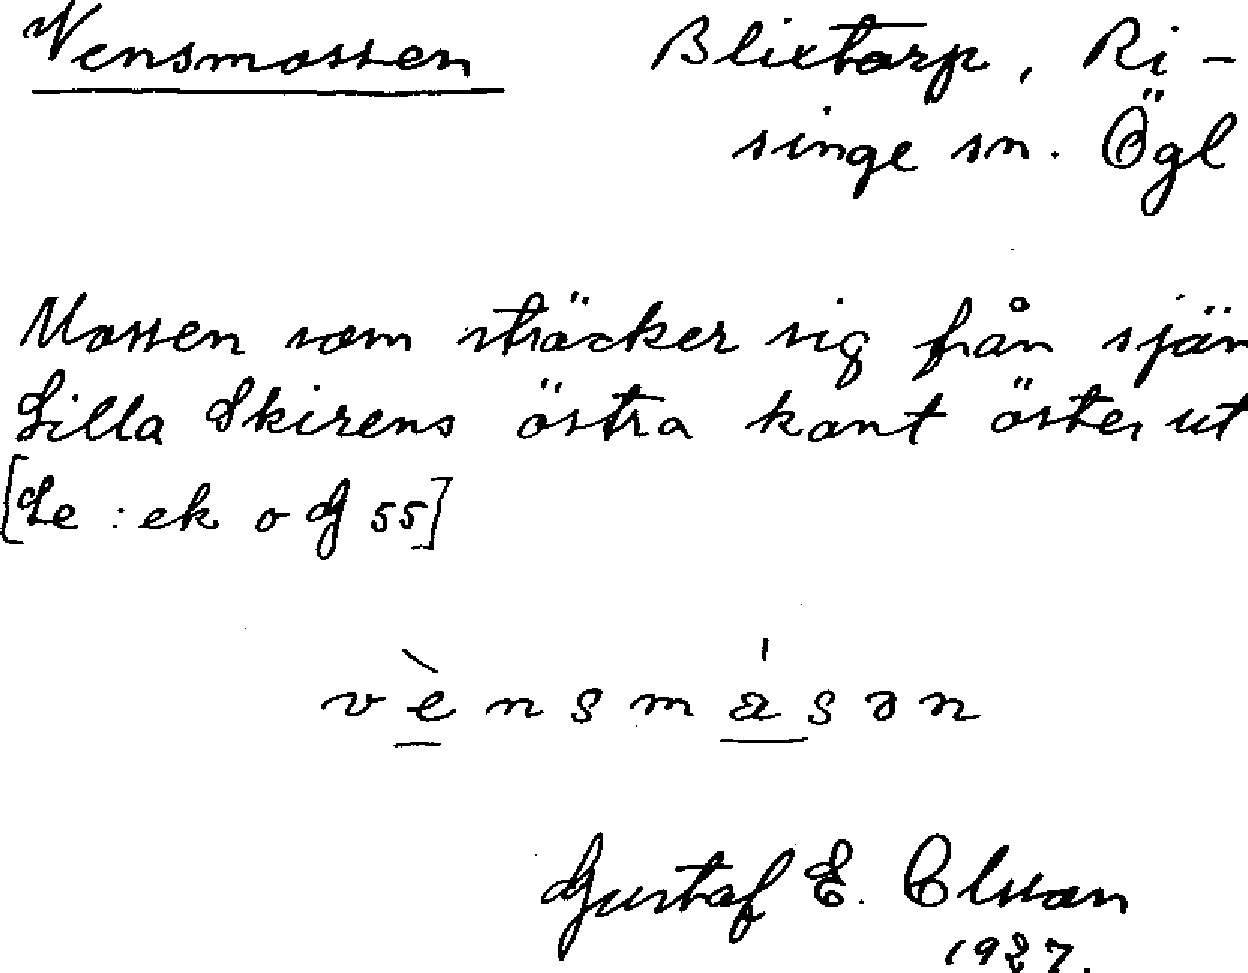 Vensmossen Blixtorp, Ri-
singe sn. Ögl
Mossen som sträcker sig från sjön
Lilla Skirens östra kant öster ut
[Se: ek o G 55]
vènsmåsən
Gustaf E.
1927.